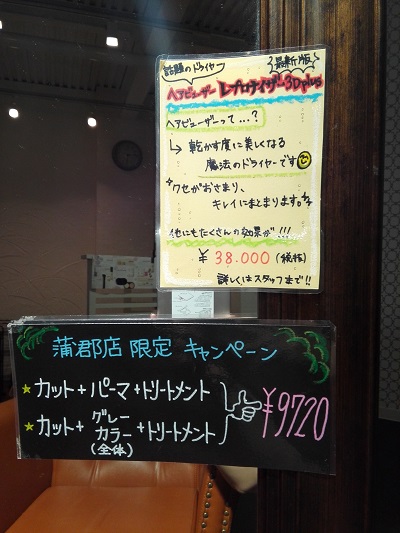 話題のドライヤー
最新版
ヘアビューザー レプロナイザー3Dplus
ヘアビューザーって…?
↳ 乾かす度に美しくなる
魔法のドライヤーです
クセがおさまり、
キレイにまとまります。
他にもたくさんの効果が!!!
¥38.000(税抜)
詳しくはスタッフまで!!
蒲郡店 限定 キャンペーン
★カット+パーマ+トリートメント
★カット+グレーカラー(全体)+トリートメント
¥9720